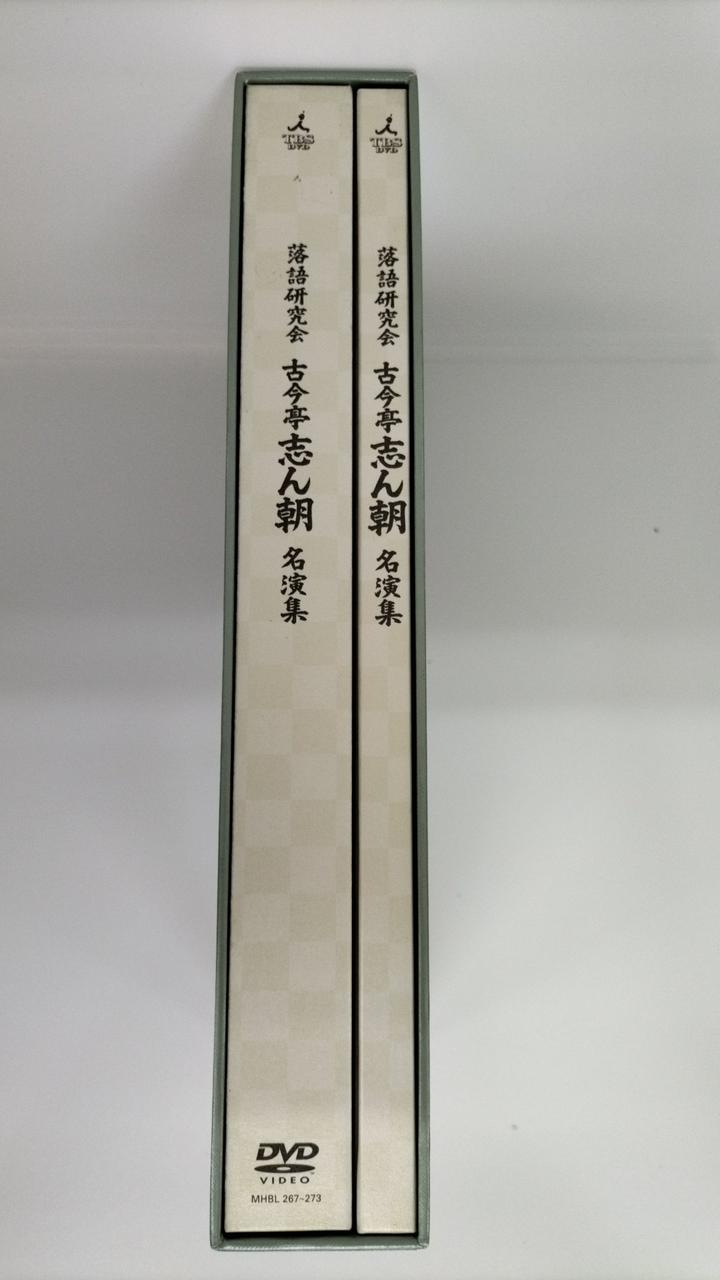 TBS
DVD
落語研究会 古今亭志ん朝 名演集
DVD
VIDEO
MHBL 267~273
TBS
DVD
落語研究会 古今亭志ん朝 名演集